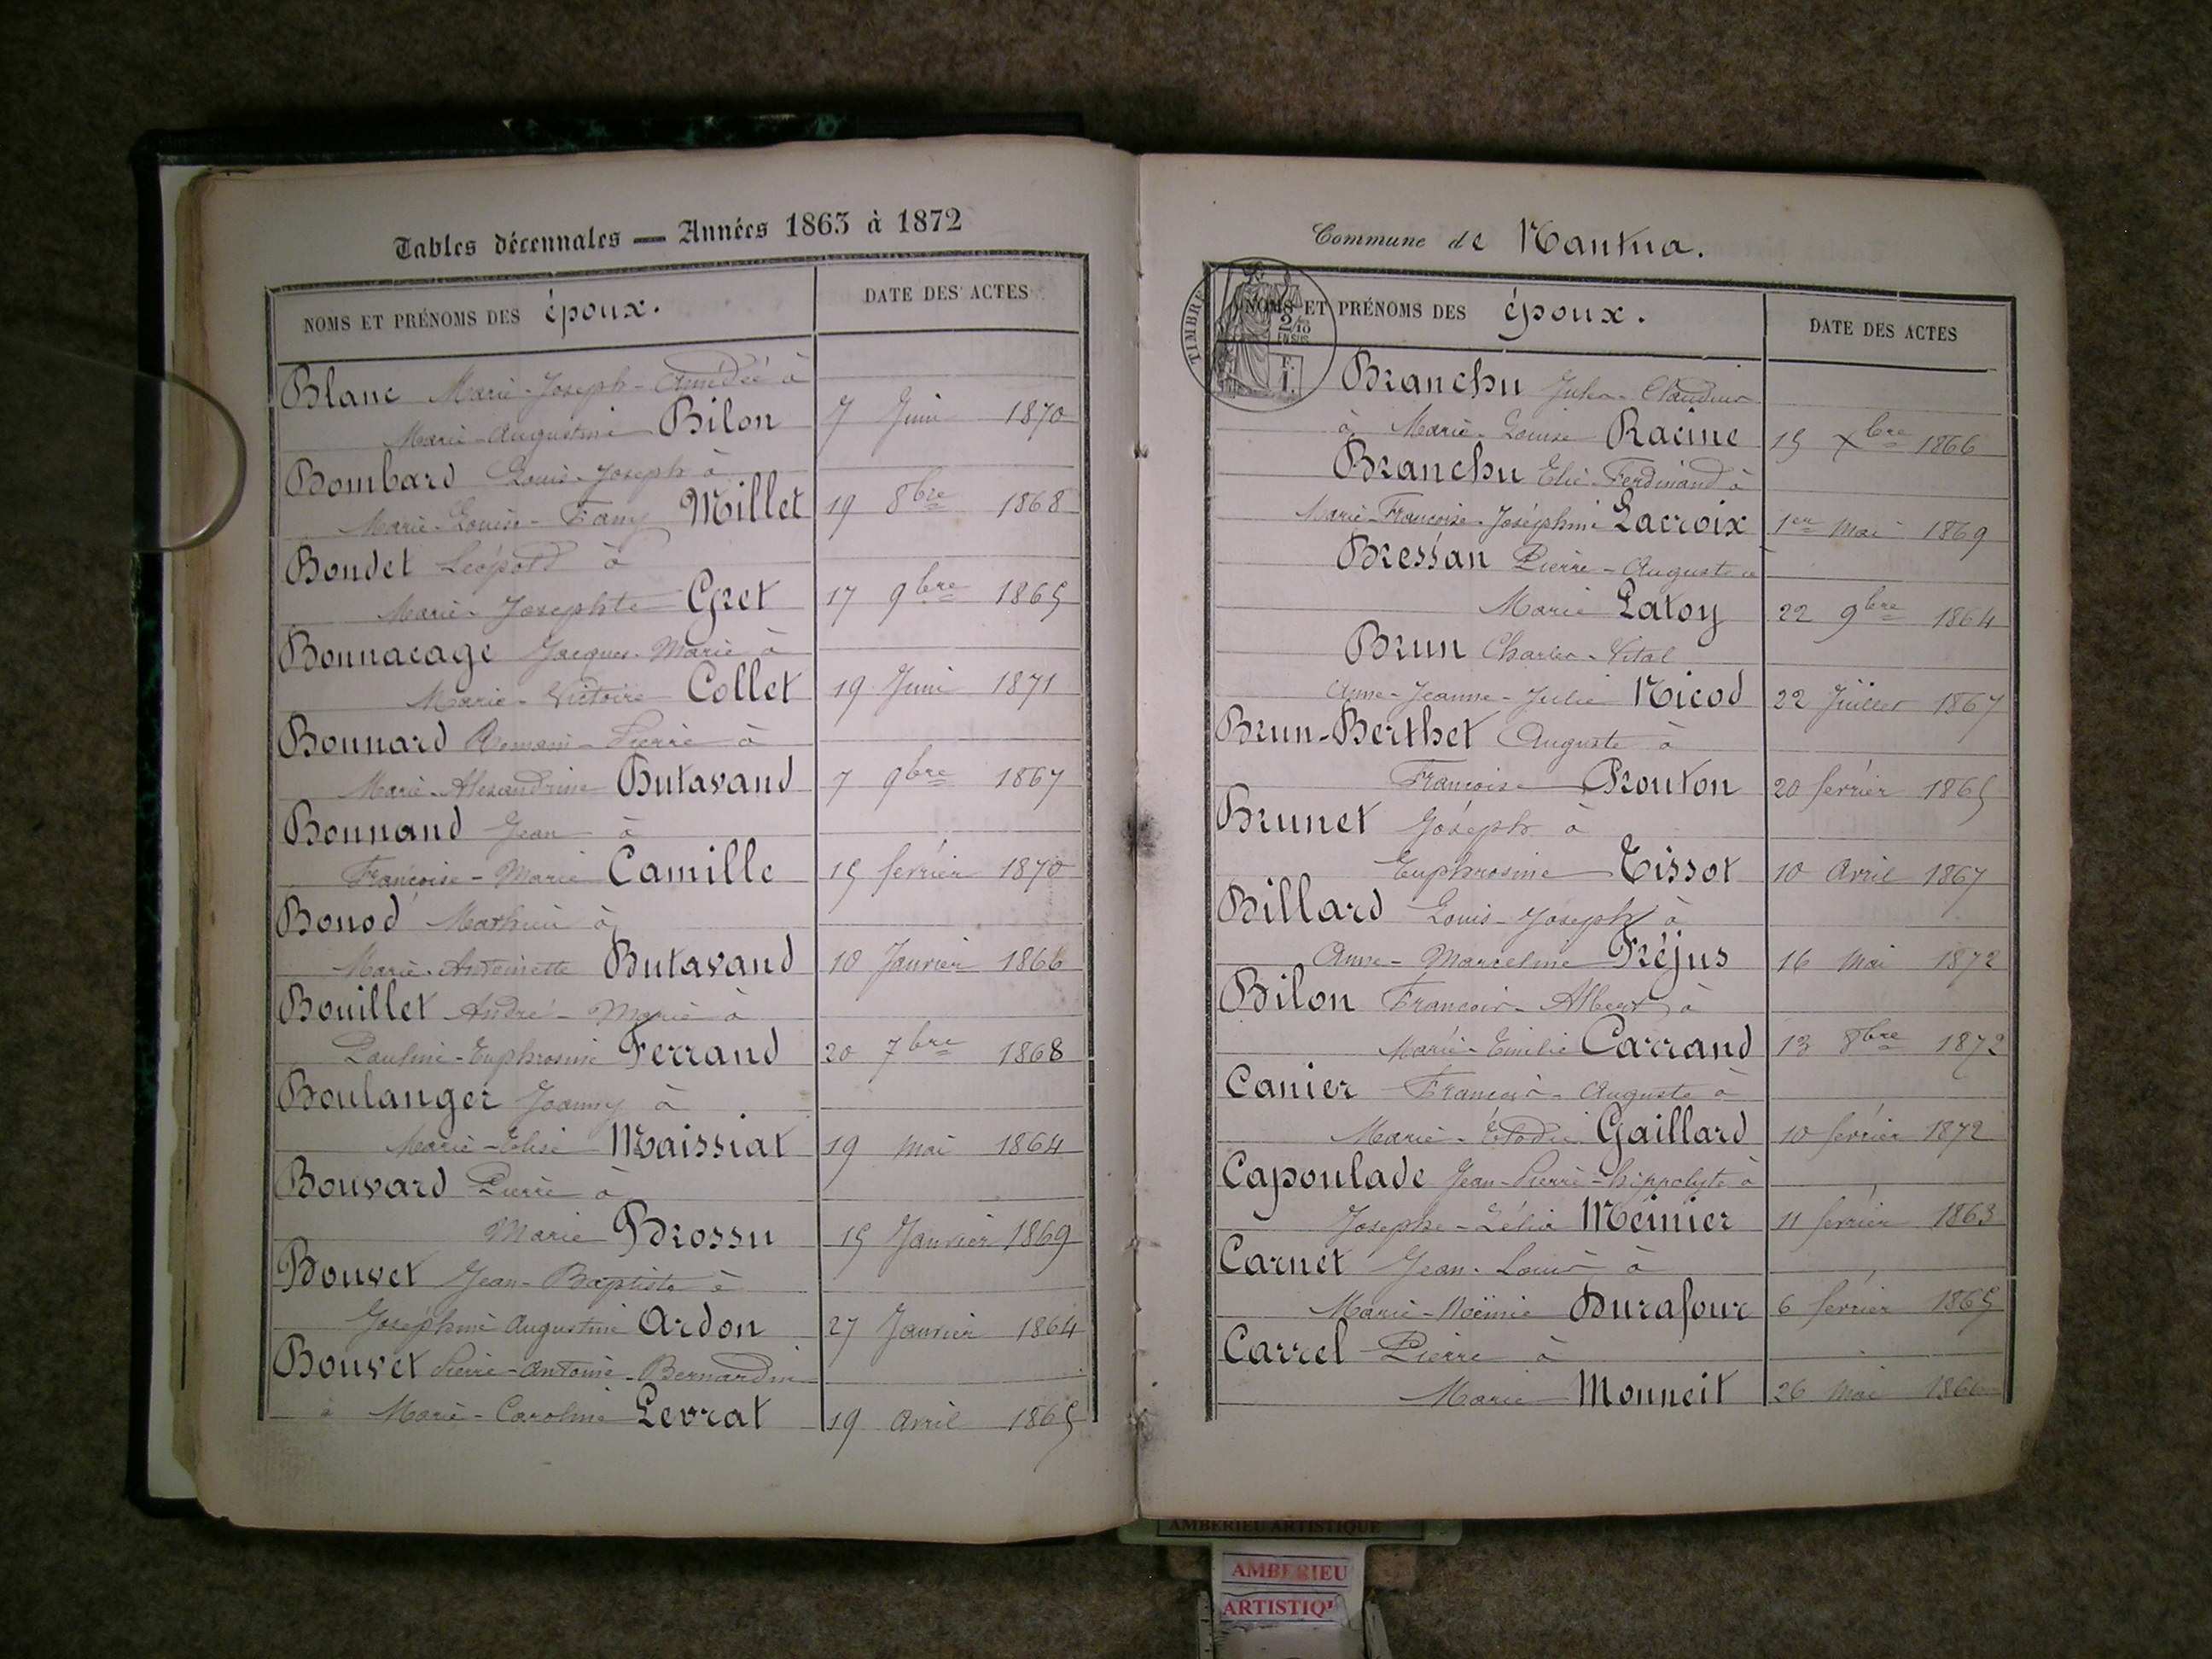 Tables décennales — Années 1863 à 1872
NOMS ET PRÉNOMS DES époux. DATE DES ACTES
Blanc Marie-Joseph-Amédée à
Marie-Augustine Bilon 7 Juin 1870
Bombard Louis-Joseph à
Marie-Louise-Fany Millet 19 8bre 1868
Bondet Léopold à
Marie-Josephte Gret 17 9bre 1865
Bonnacage Jacques-Marie à
Marie-Victoire Collet 19 Juin 1871
Bonnard Pierre à
Marie-Alexandrine Butavand 7 9bre 1867
Bonnand Jean à
Françoise-Marie Camille 15 février 1870
Bonod Mathieu à
Marie-Antoinette Butavand 10 Janvier 1866
Bouillet André-Marie à
Pauline-Euphrosine Ferrand 20 7bre 1868
Boulanger Joanny à
Marie-Elise Maissiat 19 mai 1864
Bouvard Pierre à
Marie Brossu 15 Janvier 1869
Bouvet Jean-Baptiste à
Joséphine Augustine Ardon 27 Janvier 1864
Bouvet Pierre-Antoine-Bernardin
à Marie-Caroline Levrat 19 avril 1865
Commune de Nantua.
NOMS ET PRÉNOMS DES époux. DATE DES ACTES
TIMBRE
2/10
EN SUS
F.
1.
Branchu Jules-Claudius
à Marie-Louise Racine 15 Xbre 1866
Branchu Elie-Ferdinand à
Marie-Françoise-Joséphine Lacroix 1er Mai 1869
Bressan Pierre-Auguste à
Marie Latoy 22 9bre 1864
Brun Charles-Vital
Anne-Jeanne-Julie Nicod 22 Juillet 1867
Brun-Berthet Auguste à
Françoise Prouton 20 février 1865
Brunet Joseph à
Euphrosine Tissot 10 Avril 1867
Billard Louis-Joseph à
Anne-Marceline Fréjus 16 Mai 1872
Bilon François-Albert à
Marie-Emilie Carrand 13 8bre 1872
Canier François-Auguste à
Marie-Élodie Gaillard 10 février 1872
Capoulade Jean-Pierre-hippolyte à
Josephe-Zélia Meinier 11 février 1863
Carnet Jean-Louis à
Marie-Noëmie Durafour 6 février 1865
Carrel Pierre à
Marie Monneit 26 Mai 1866
AMBERIEU ARTISTIQUE
AMBERIEU
ARTISTIQ